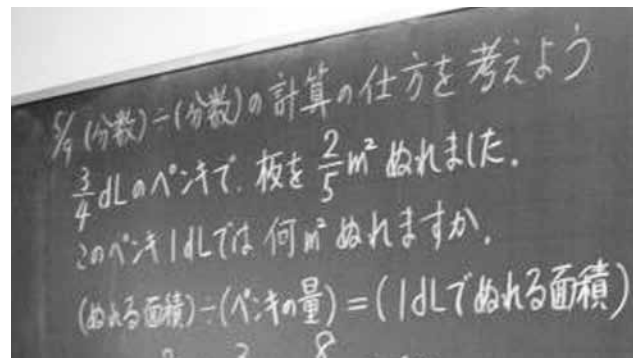 5/9 (分数)÷(分数)の計算の仕方を考えよう
3/4 dLのペンキで、板を 2/5 m² ぬれました。
このペンキ1dLでは何m²ぬれますか。
(ぬれる面積)÷(ペンキの量)=(1dLでぬれる面積)